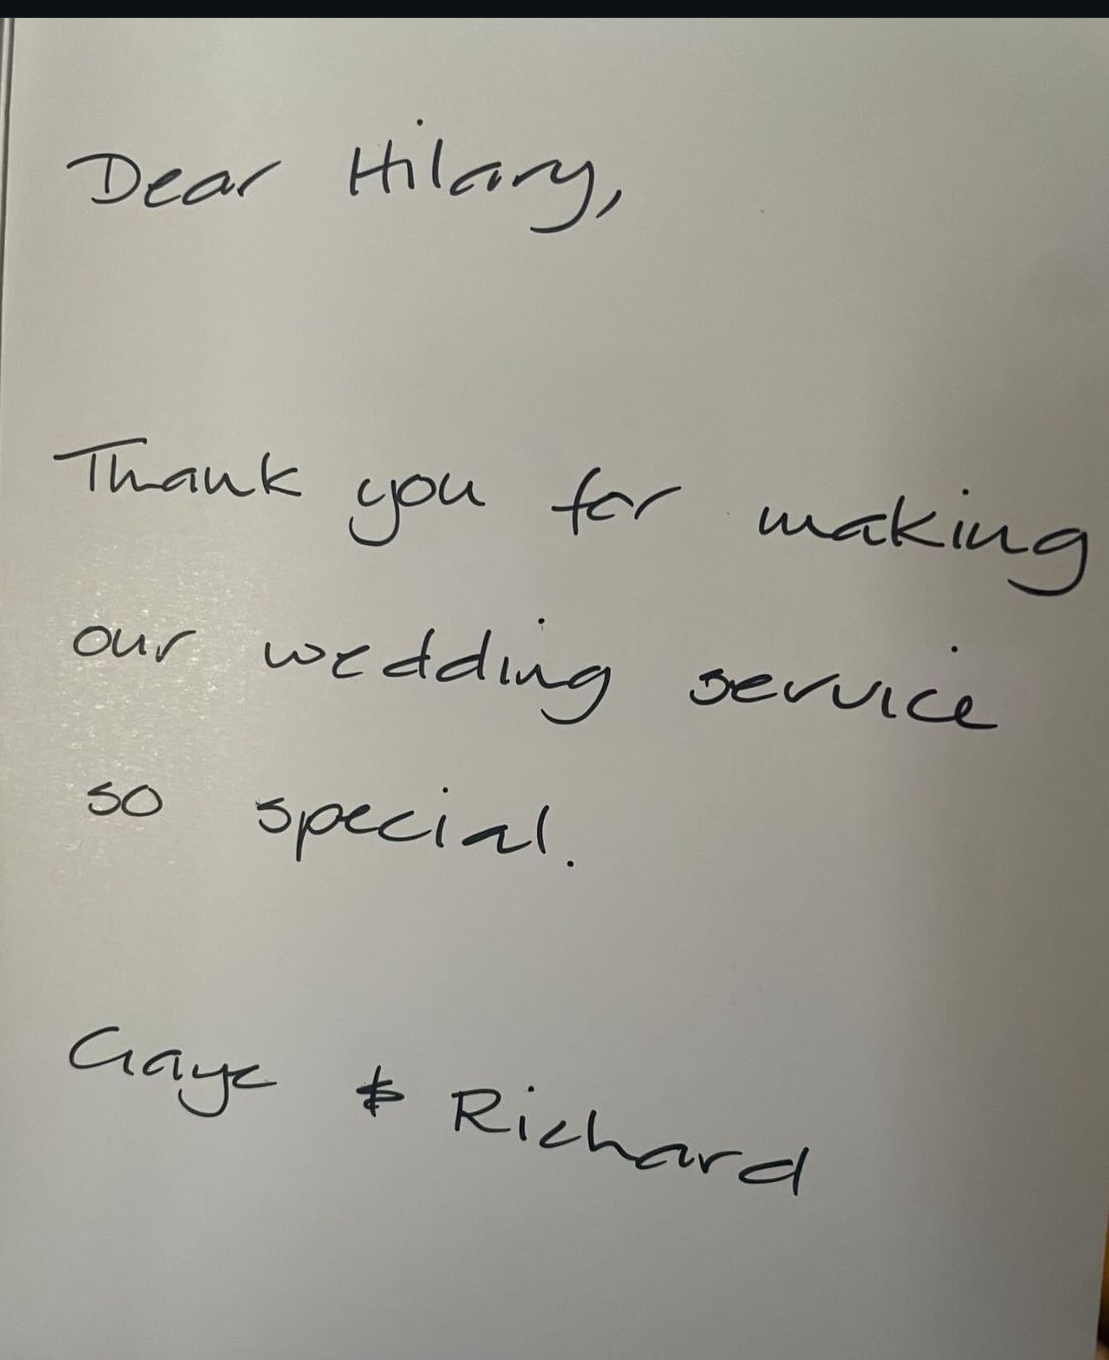 Dear Hilary,
Thank you for making
our wedding service
so special.
Gaye & Richard